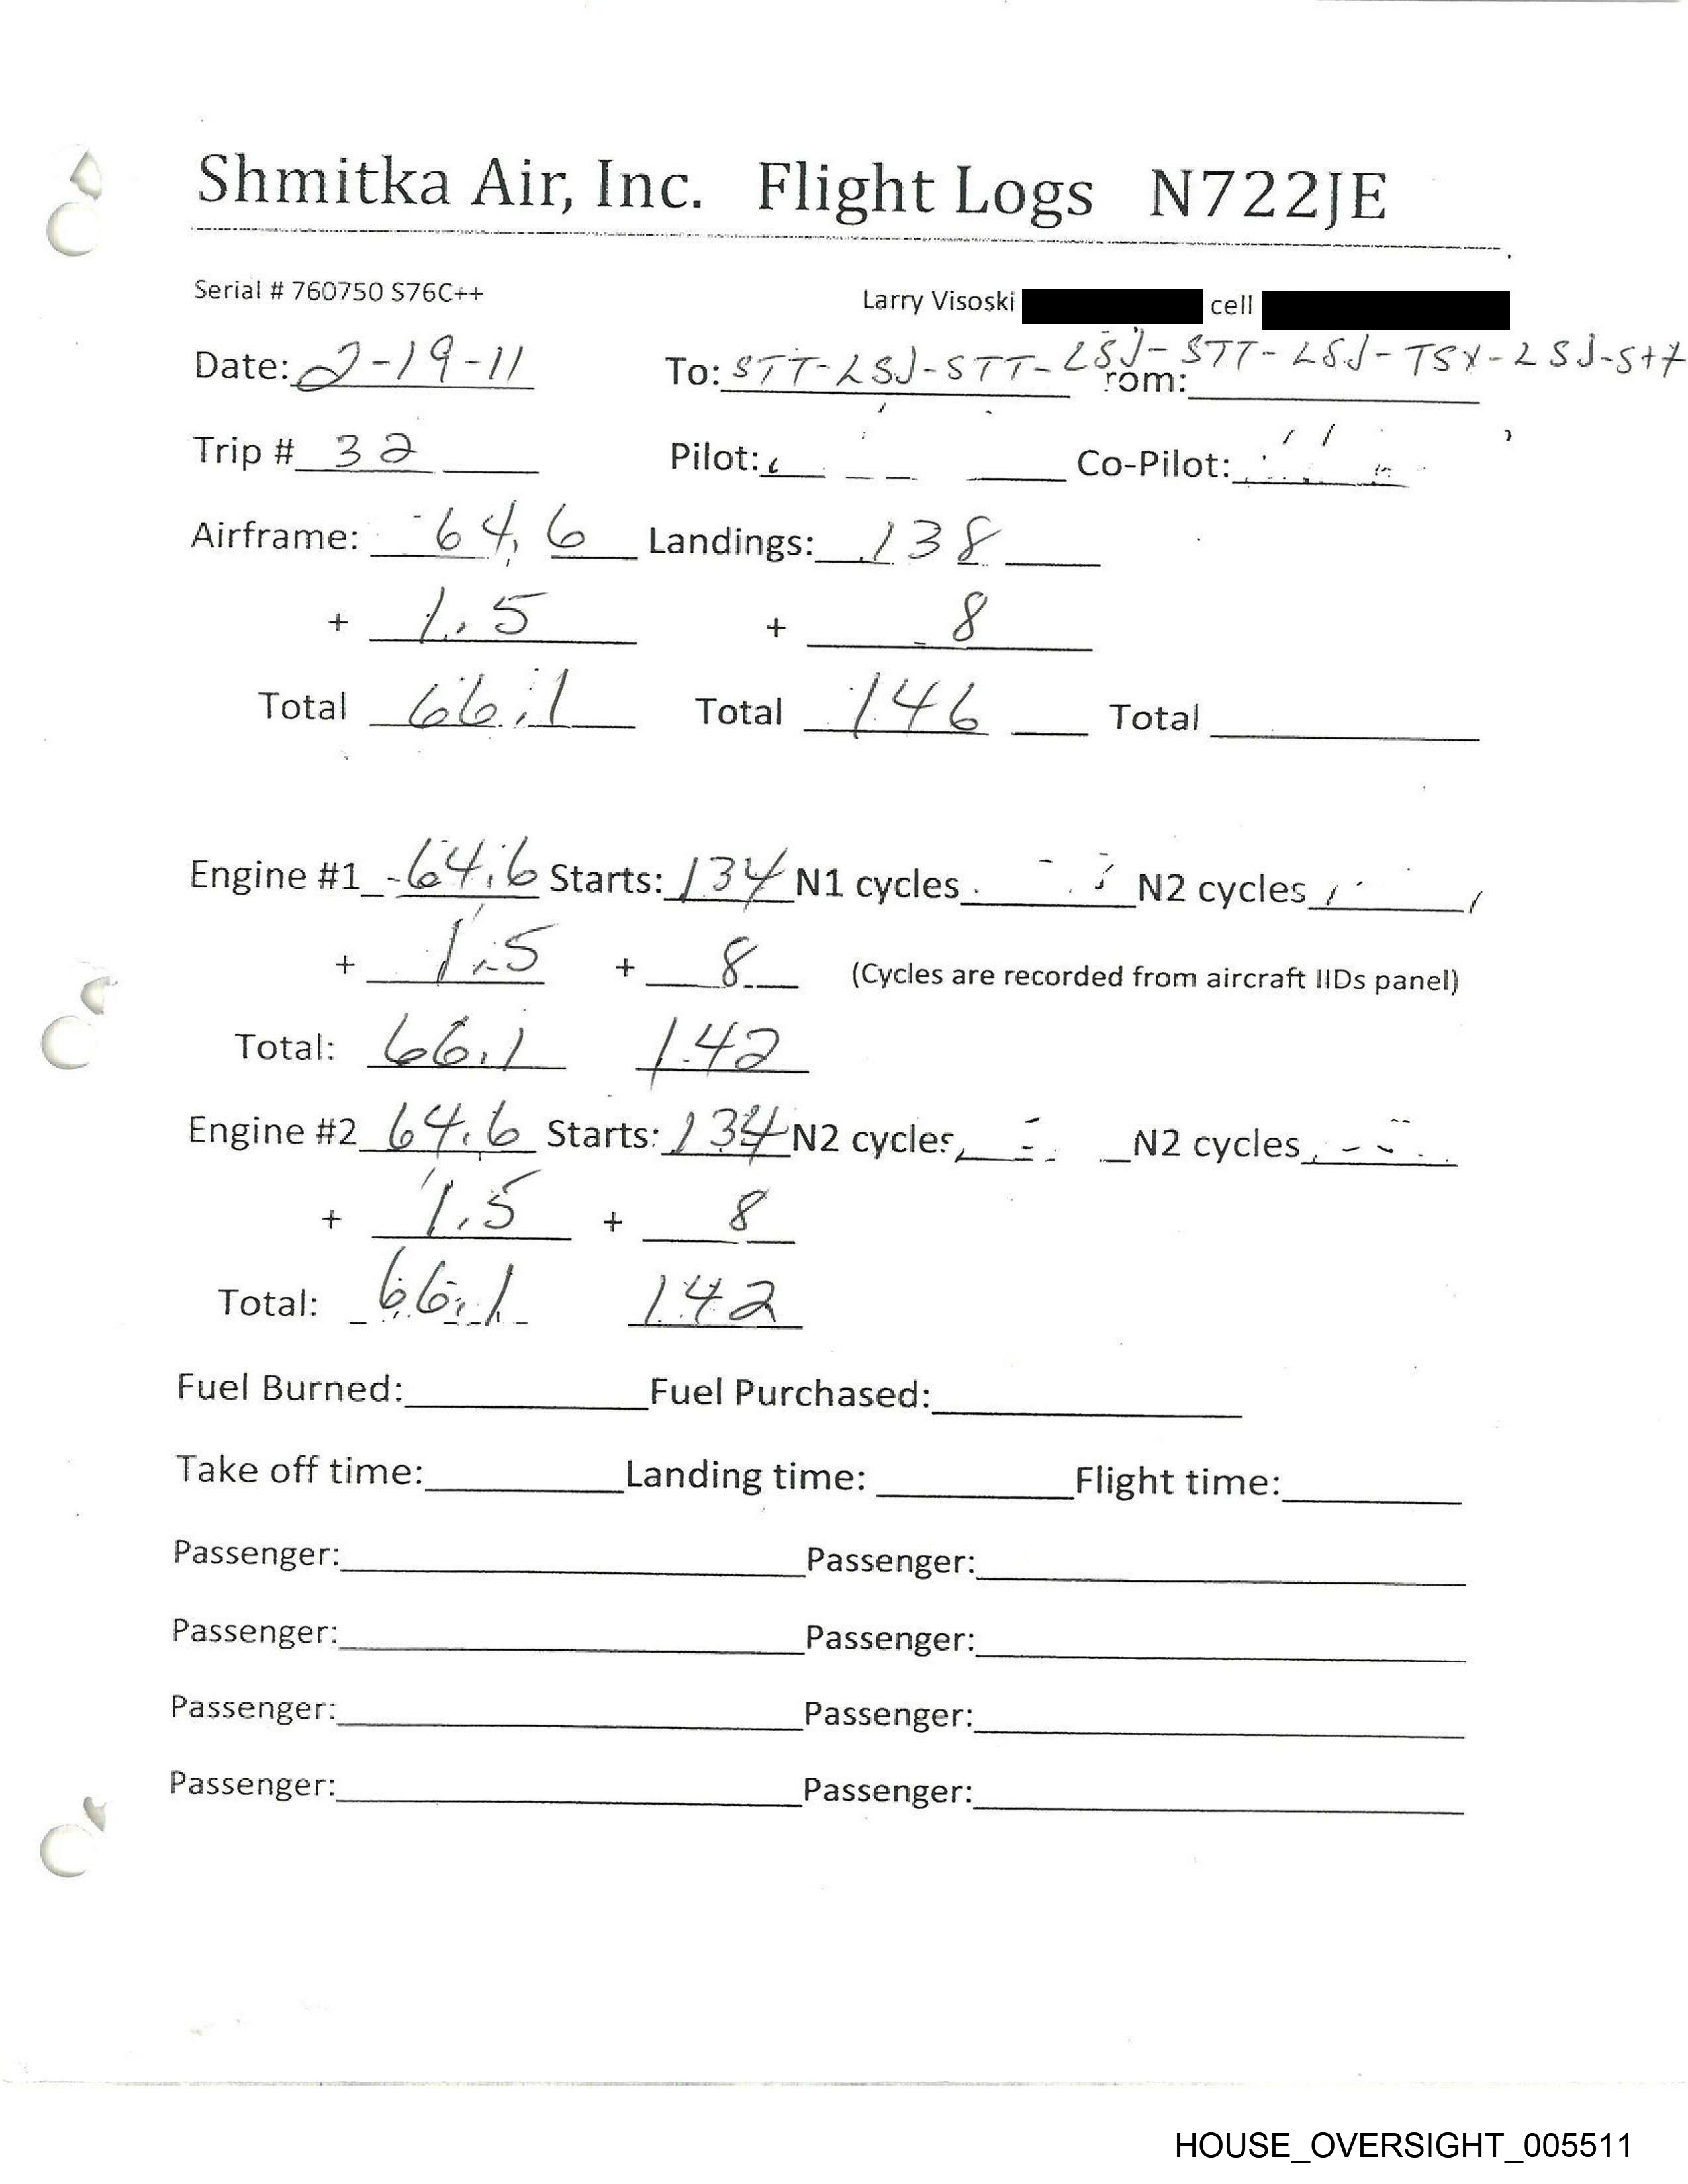 Shmitka Air, Inc. Flight Logs N722JE
Serial # 760750 S76C++ Larry Visoski cell
Date: 2-19-11 To: STT-LSJ-STT-LSJ-STT-LSJ-TSX-LSJ-STT rom:
Trip # 32 Pilot: Co-Pilot:
Airframe: 64.6 Landings: 138
+ 1.5 + 8
Total 66.1 Total 146 Total
Engine #1 64.6 Starts: 134 N1 cycles N2 cycles
+ 1.5 + 8 (Cycles are recorded from aircraft IIDs panel)
Total: 66.1 142
Engine #2 64.6 Starts: 134 N2 cycles N2 cycles
+ 1.5 + 8
Total: 66.1 142
Fuel Burned: Fuel Purchased:
Take off time: Landing time: Flight time:
Passenger: Passenger:
Passenger: Passenger:
Passenger: Passenger:
Passenger: Passenger:
HOUSE_OVERSIGHT_005511